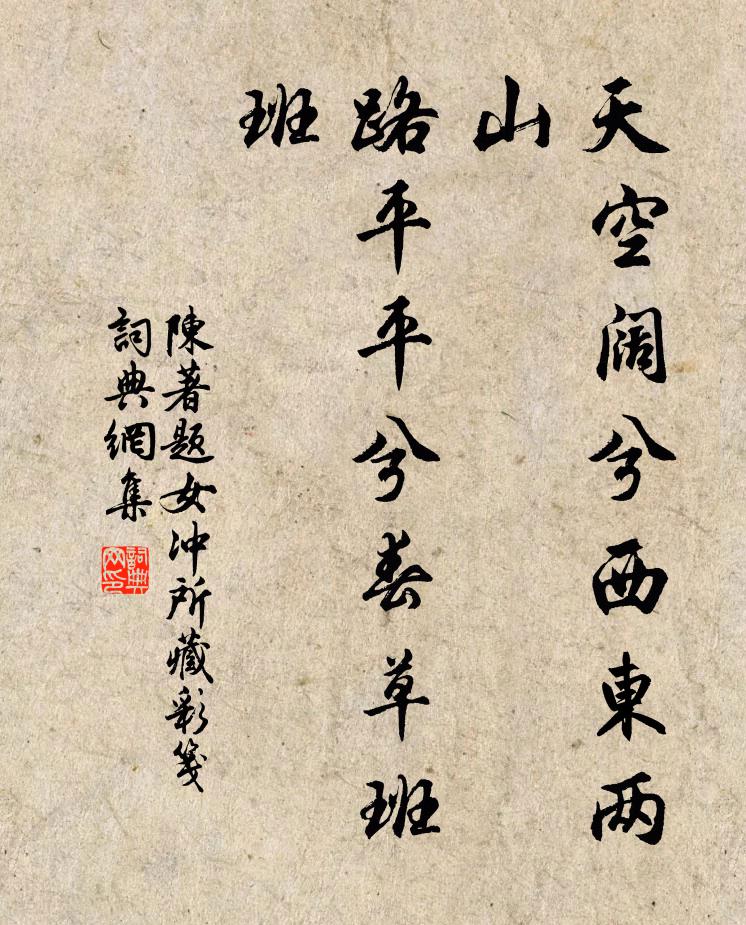 天空阔兮西東两
山
路平平兮春草班
班
陳著題女冲所藏彩箋
詞典網集
詞典
网印